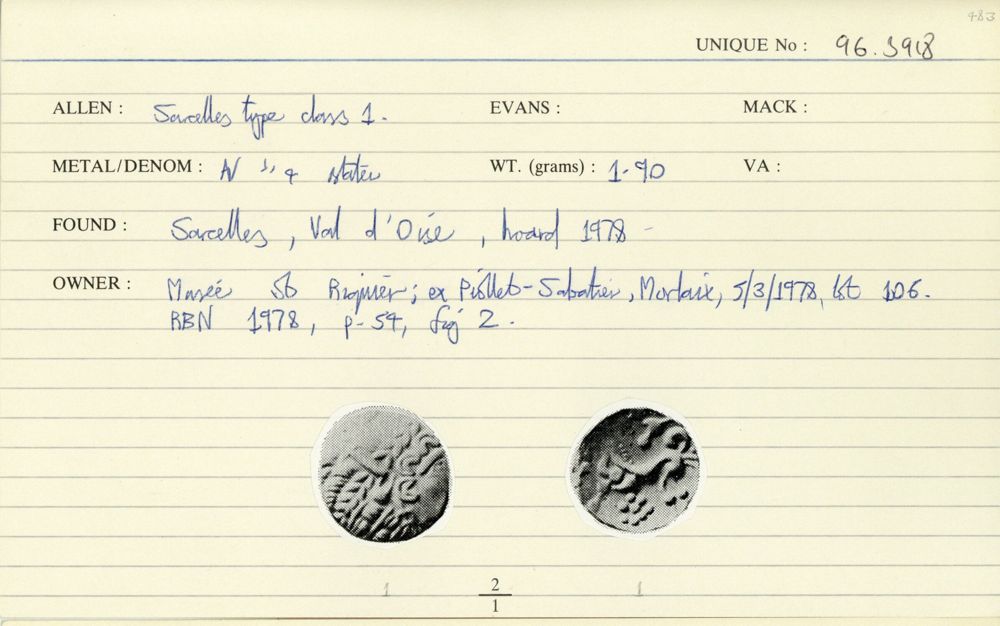 483
UNIQUE No : 96.3918
ALLEN : Sarcelles type class 1. EVANS : MACK :
METAL/DENOM : AV 1/4 stater WT. (grams) : 1.90 VA :
FOUND : Sarcelles, Val d'Oise, hoard 1978
OWNER : Musée St Riquier; ex Piollet-Sabatier, Morlaix, 5/3/1978, lot 106.
RBN 1978, p.54, fig 2.
1 2 1
1